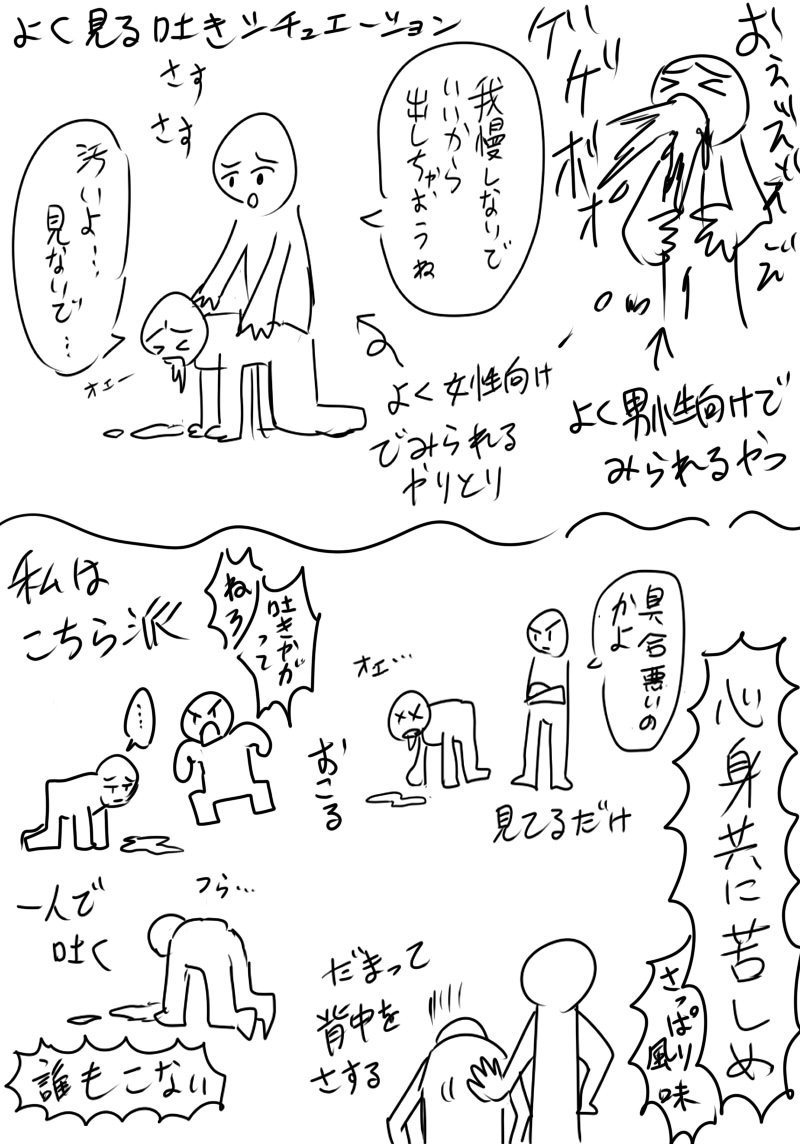 よく見る吐きシチュエーション
おえ゛え゛え゛え゛ん
ゲゲボボ
我慢しないで
いいから
出しちゃおうね
さす
さす
汚いよ…
見ないで…
オエー
よく女性向け
でみられる
やりとり
よく男性向けで
みられるやつ
私は
こちら派
吐きやが
って
ねろ
……
おこる
具合悪いの
かよ
オエ…
見てるだけ
心身共に苦しめ
さっぱり風味
一人で
吐く
つら…
誰もこない
だまって
背中を
さする